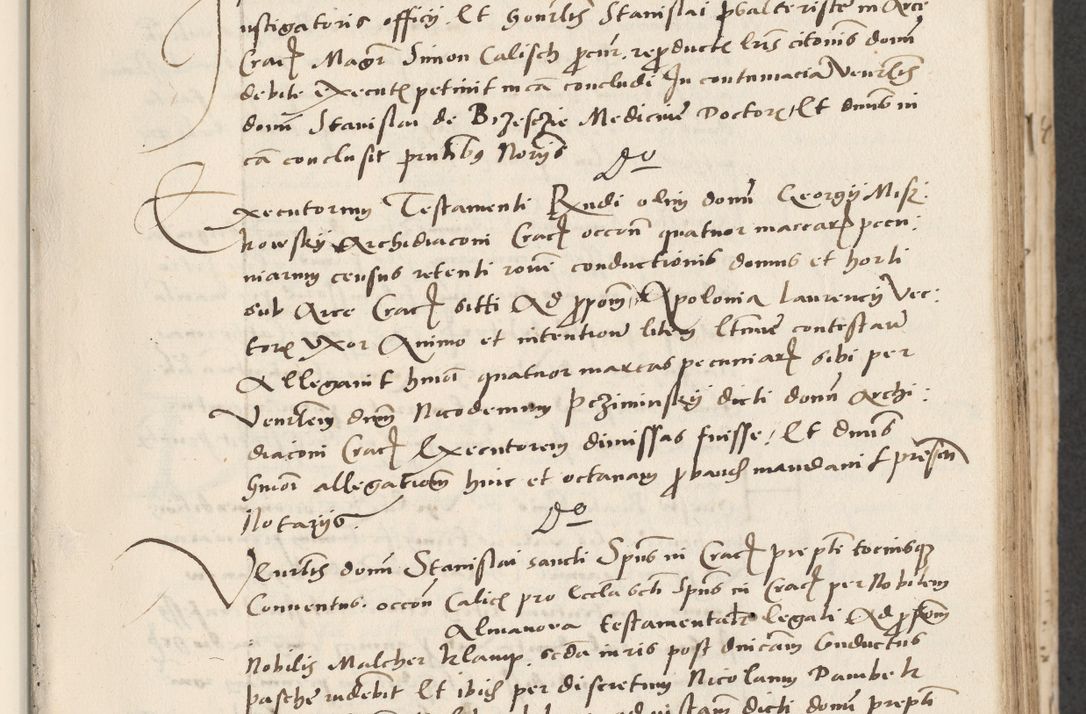 Instigatoris officij Et honorlis Stanislai psalteriste in Arce
Crac Magr Simon Calisch procur. reproductis lris citonis domi
debite executis petiuit in ca concludi In contumacia Venerlis
domi Stanislai de Brzeszie Medicine Doctoris Et dnus in
ca conclusit pntibus Noriis
Do
Executorum Testamenti Rndi olim domi Georgij Misz
kowsky Archidiaconi Crac occon quatuor marcarum pecu:
niarum census retenti rone conductionis domus et horti
sub Arce Crac siti Ad prpom Apolonia Laurencij Vec:
toris Vxor Animo et intentione litem ltime contestare
Allegauit hmoi quatuor marcas pecuniarum sibi per
Venerlem dnm Nicodemum Pcziminsky dicti domi Archi:
diaconi Crac Executorem dimissas fuisse, Et dnus
hmoi allegationem hinc et octauam probandi mandauit presentibus
Notarijs.
Do
Venerlis domi Stanislai sancti Spus in Crac prepti tociusque
Conuentus. occon Calicis pro Eccla scti Spus in Crac per Nobilem
Almanora testamentaliter legati Ad prpom
Nobilis Malcher Klamp. scda iuris post dnicam Conductus
pasche rndebit Et ibidem per discretum Nicolaum Dambek
dicti domi prepti